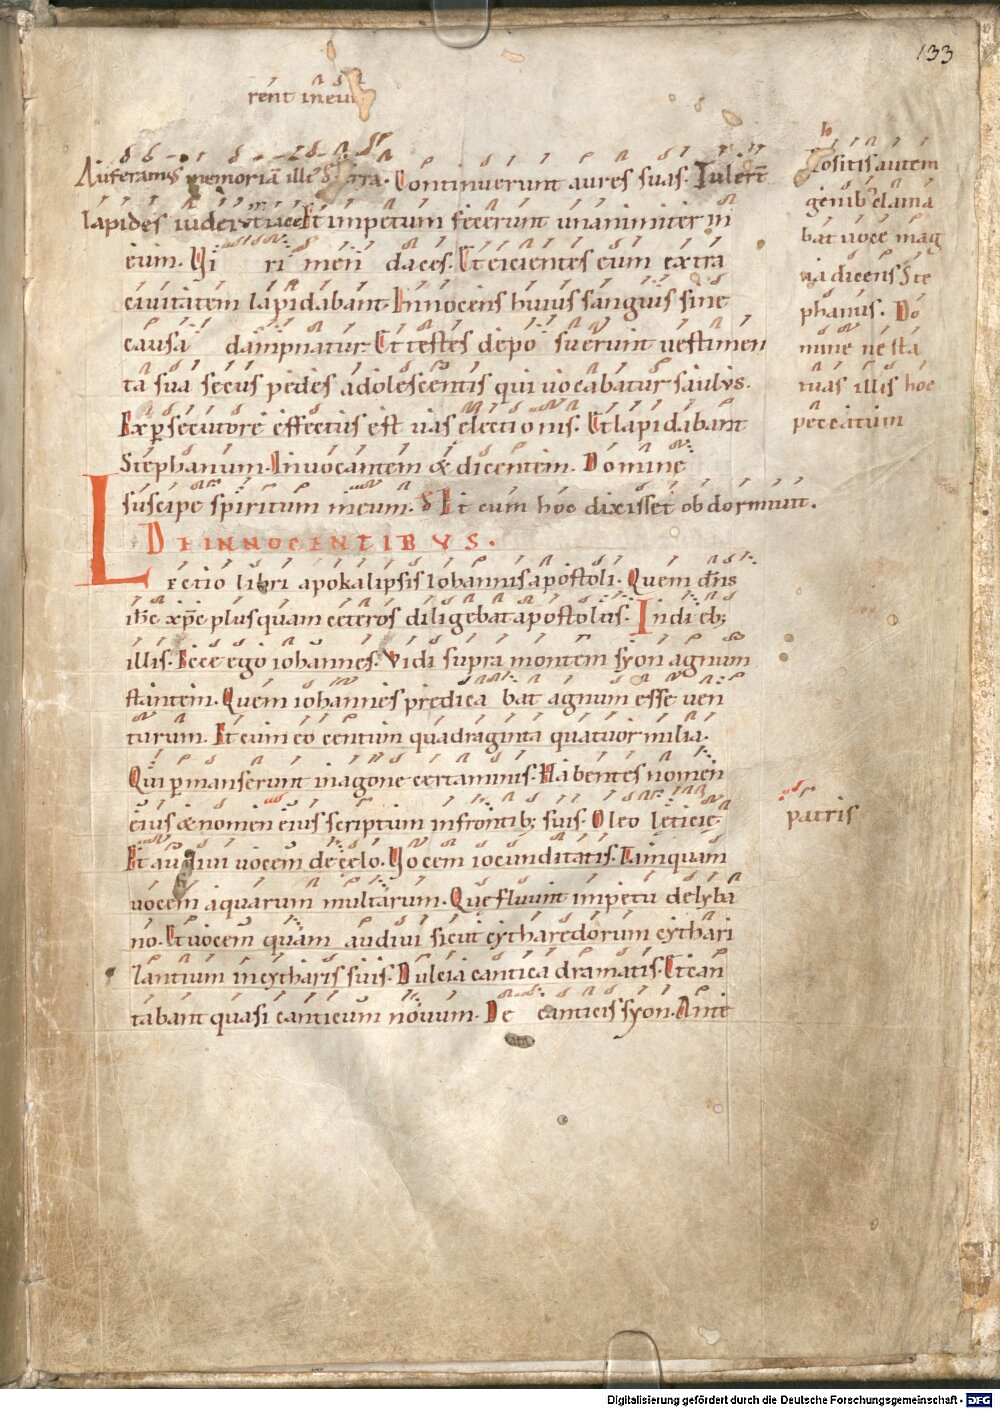 133
rent in eum
Auferamus memoriā illiꝰ d̄ tra. Continuerunt aures suas. Tulerт̄
lapides iudei ut iacerent Et impetum fecerunt unanimiter in
eum. Viri mendaces. Et eicientes eum extra
ciuitatem lapidabant. Innocens huius sanguis sine
causa dampnatur. Et testes depo suerunt uestimen
ta sua secus pedes adolescentis qui uocabatur saulus.
Ex ꝑsecutore effectus est uas electionis. Et lapidabant
Stephanum. Inuocantem & dicentem. Domine
suscipe spiritum meum. Et cum hoc dixisset obdormiuit.
DE INNOCENTIBVS.
Lectio libri apokalipsis Iohannis apostoli. Quem dn̄s
ih̄c xp̄c plus quam ceteros diligebat apostolus. In dieb;
illis. Ecce ego iohannes. Vidi supra montem syon agnum
stantem. Quem iohannes predica bat agnum esse uen
turum. Et cum eo centum quadraginta quatuor milia.
Qui ꝑmanserunt in agone certaminis. Habentes nomen
eius & nomen eius scriptum in frontib; suis. Oleo leticie
Et audiui uocem de celo. Vocem iocunditatis. Tamquam
uocem aquarum multarum. Que fluunt impetu de lyba
no. Et uocem quam audiui sicut cytharedorum cythari
zantium in cytharis suis. Dulcia cantica dramatis. Et can
tabant quasi canticum nouum. De canticis syon. Ante
Positis autem
genib; clama
bat uoce mag
na dicens Ste
phanus. Do
mine ne sta
tuas illis hoc
peccatum
patris
Digitalisierung gefördert durch die Deutsche Forschungsgemeinschaft - DFG